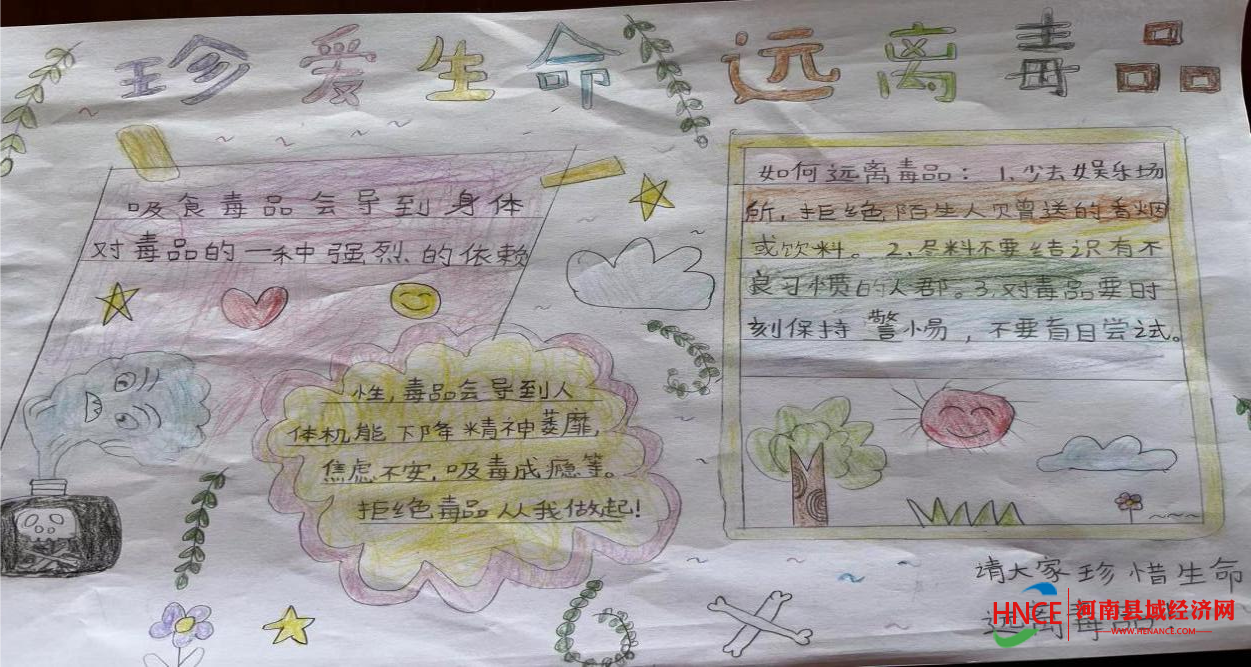 珍爱生命远离毒品
吸食毒品会导到身体
对毒品的一种强烈的依赖
性,毒品会导到人
体机能下降精神萎靡,
焦虑不安,吸毒成瘾等。
拒绝毒品从我做起!
如何远离毒品:1.少去娱乐场
所,拒绝陌生人赠送的香烟
或饮料。2.尽料不要结识有不
良习惯的人群。3.对毒品要时
刻保持警惕,不要盲目尝试。
请大家珍惜生命
远离毒品
HNCE 河南县域经济网
WWW.HENANCE.COM